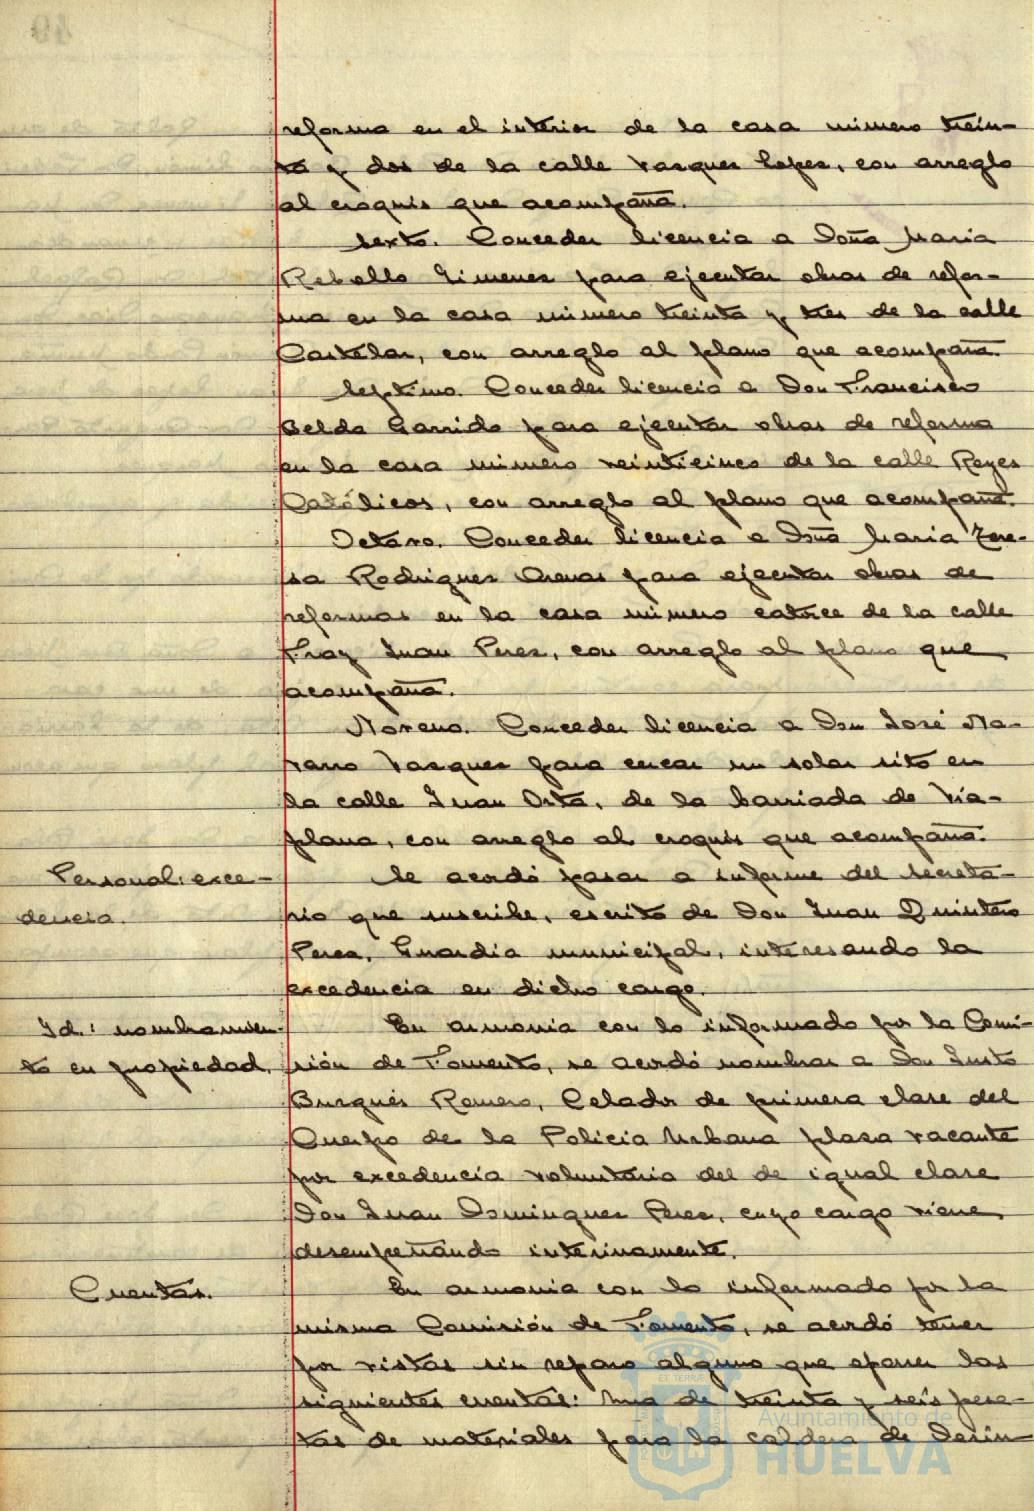 reforma en el interior de la casa número trein-
ta y dos de la calle Vasquez Lopez, con arreglo
al croquis que acompaña.
Sexto. Conceder licencia a Doña Maria
Rebollo Gimenez para ejecutar obras de refor-
ma en la casa número treinta y tres de la calle
Castelar, con arreglo al plano que acompaña.
Septimo. Conceder licencia a Don Francisco
Belda Garrido para ejecutar obras de reforma
en la casa número veinticinco de la calle Reyes
Católicos, con arreglo al plano que acompaña.
Octavo. Conceder licencia a Doña Maria Tere-
sa Rodriguez Arenas para ejecutar obras de
reformas en la casa número catorce de la calle
Fray Juan Perez, con arreglo al plano que
acompaña.
Noveno. Conceder licencia a Don José Na-
varro Vasquez para cercar un solar sito en
la calle Juan Orta, de la barriada de Via-
plana, con arreglo al croquis que acompaña.
Personal: exce-
dencia.
Se acordó pasar a informe del Secreta-
rio que suscribe, escrito de Don Juan Quintero
Perea, Guardia municipal, interesando la
excedencia en dicho cargo.
Id.: nombramien-
to en propiedad.
En armonia con lo informado por la Comi-
sión de Fomento, se acordó nombrar a Don Justo
Burgués Romero, Celador de primera clase del
Cuerpo de la Policia Urbana plaza vacante
por excedencia voluntaria del de igual clase
Don Juan Dominguez Perez, cuyo cargo viene
desempeñando interinamente.
Cuentas.
En armonia con lo informado por la
misma Comisión de Fomento, se acordó tener
por vistas sin reparo alguno que oponer las
siguientes cuentas: Una de treinta y seis pese-
tas de materiales para la caldera de Desin-
Ayuntamiento de
HUELVA